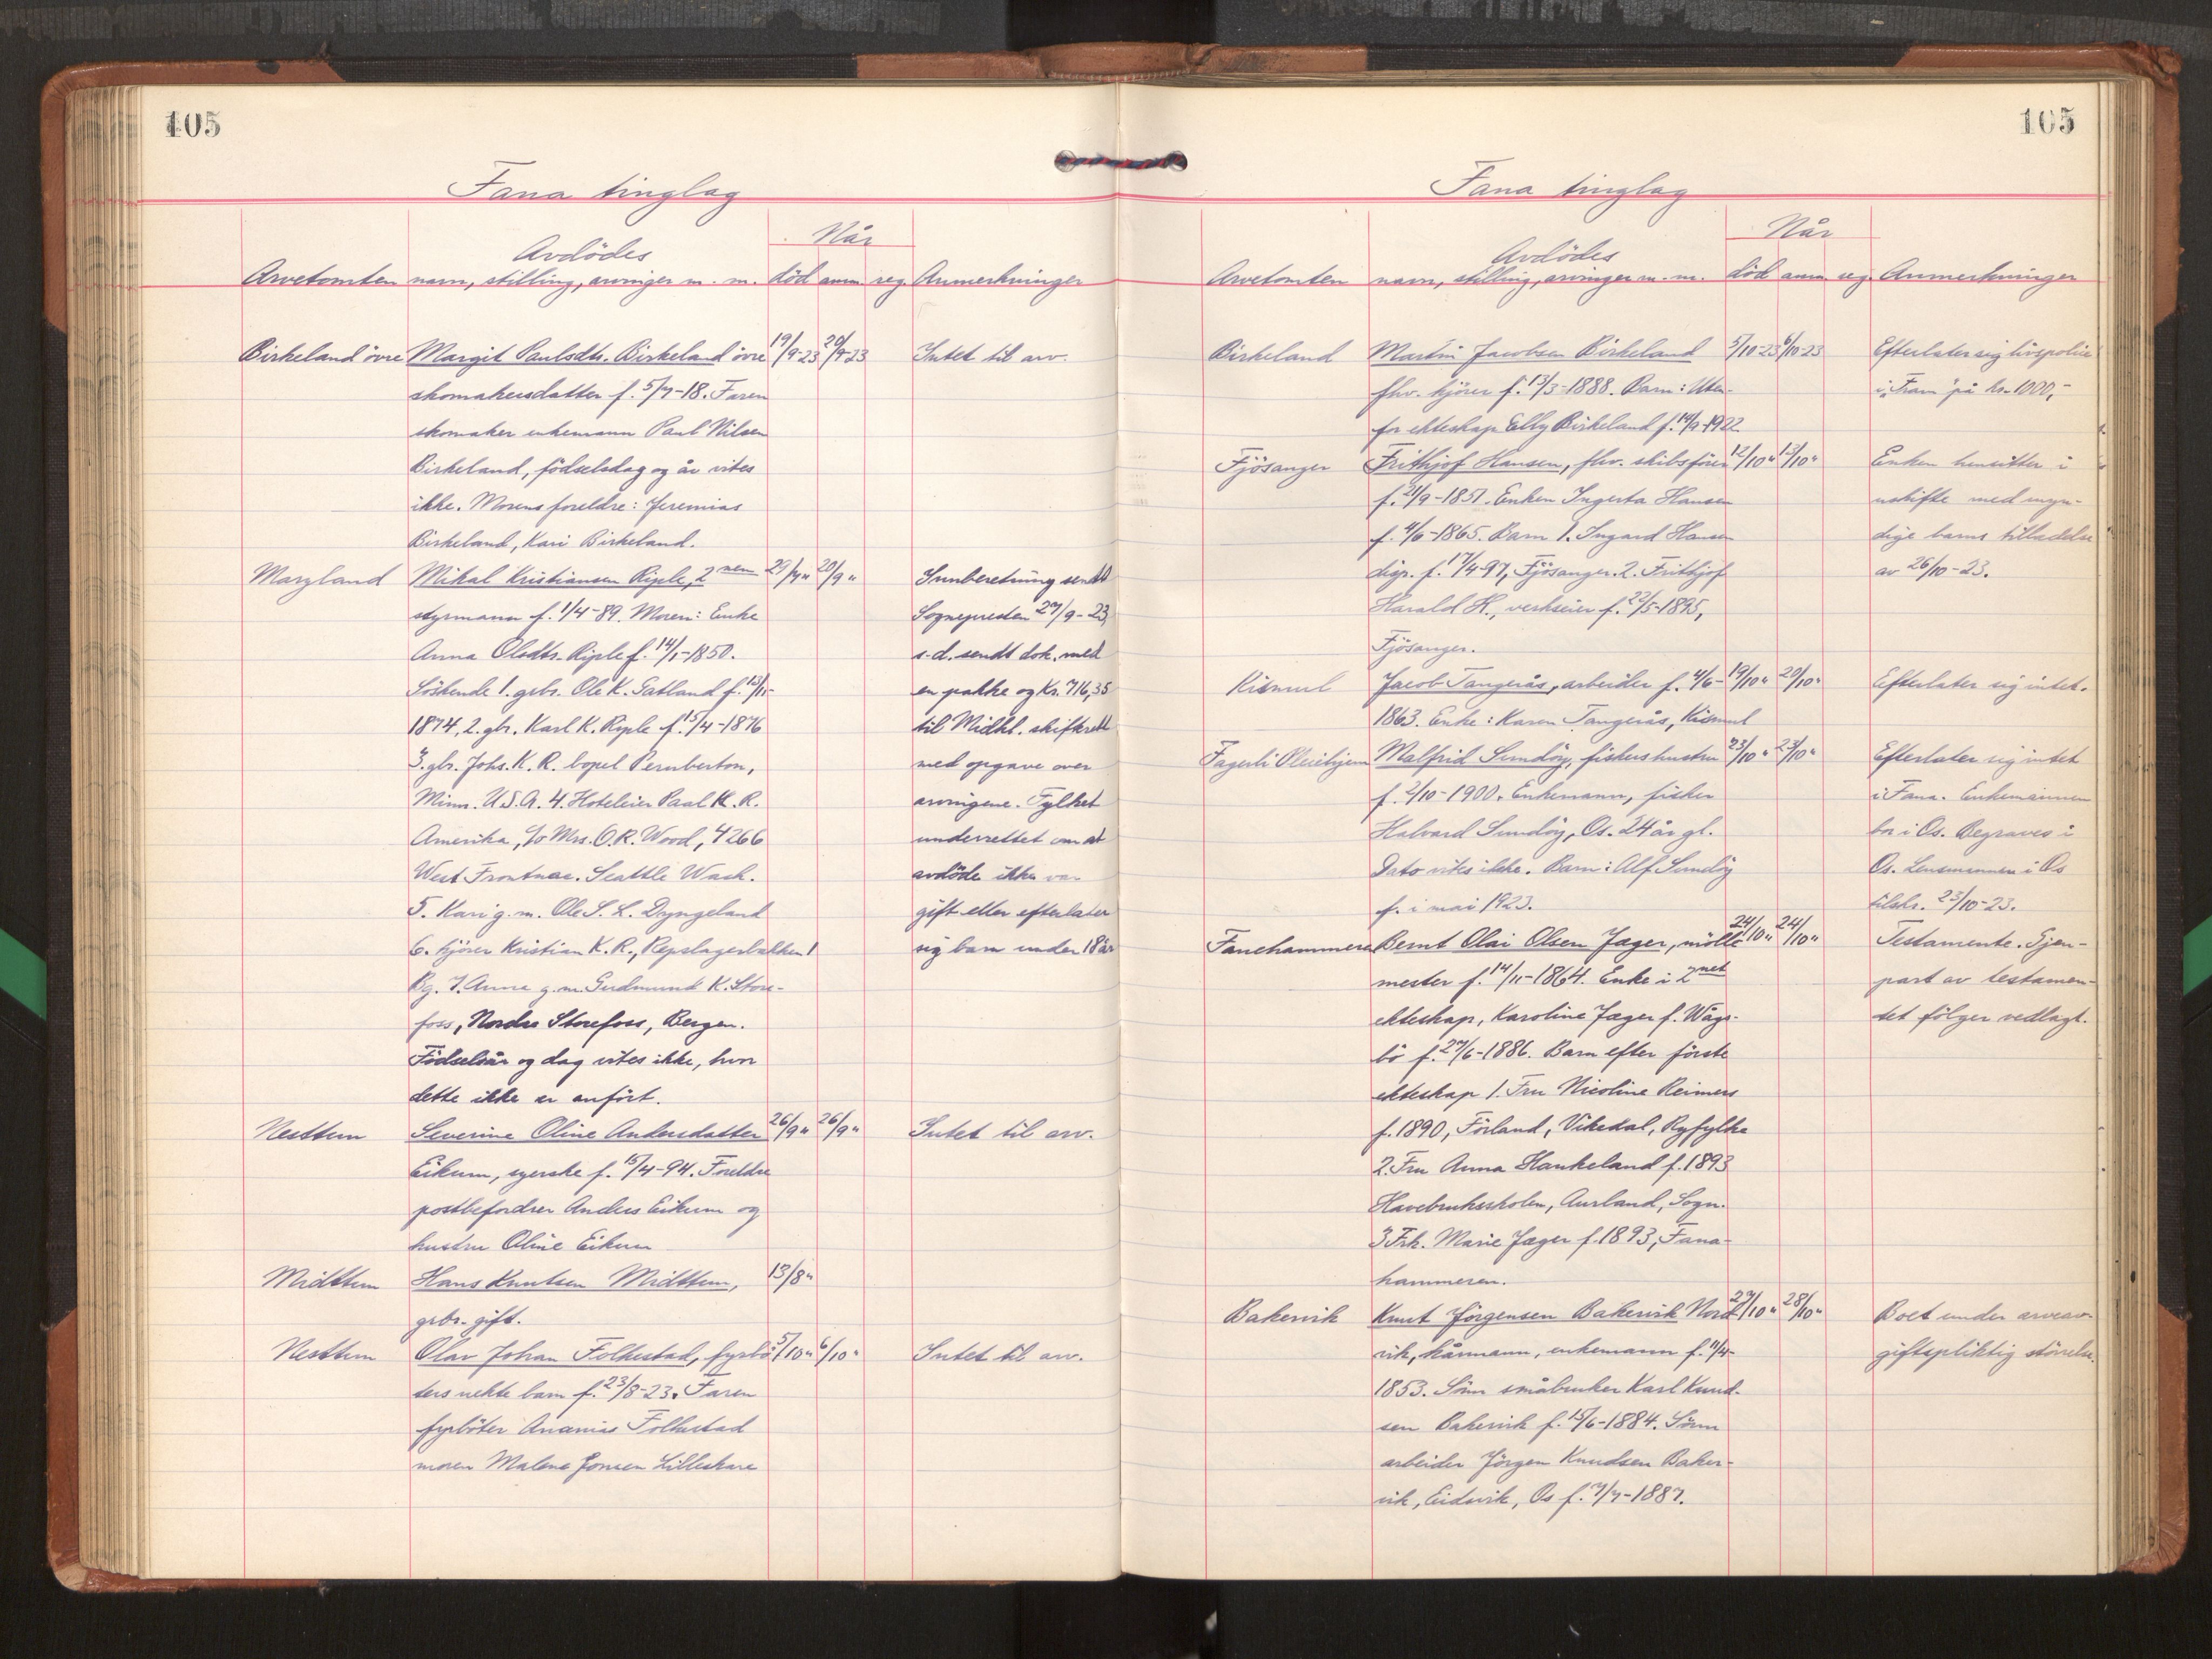 105
Fana tinglag
Når
Avdödes
Arvetomten navn, stilling, arvinger m. m. död anm. reg. Anmerkninger
Birkeland övre Margit Paulsdtr. Birkeland övre 19/9-23 20/9-23 Intet til arv.
skomakersdatter f. 5/7-18. Faren
skomaker enkemann Paul Nilsen
Birkeland, födselsdag og år vites
ikke. Morens foreldre: Jeremias
Birkeland, Kari Birkeland.
Maryland Mikal Kristiansen Riple, 2nen 29/7" 20/9" Innberetning sendt
styrmann f. 1/4-89. Moren: Enke Sognepresten 27/9-23,
Anna Olsdtr. Riple f. 14/1-1850. s.d. sendt dok. med
Söskende 1. grbr. Ole K. Gatland f. 13/11- en pakke og Kr. 716,35
1874, 2. gbr. Karl K. Riple f. 15/4-1876 til Midhl. skifterett
3. gbr. Johs. K. R. bopel Pemberton, med opgave over
Minn. U.S.A. 4. Hoteleier Paul K. R. arvingene. Fylket
Amerika, c/o Mrs. O.R. Wood, 4266 underrettet om at
West Frontnac. Seattle Wash. avdöde ikke var
5. Kari g.m. Ole S. L. Dyngeland gift eller efterlater
6. kjörer Kristian K. R., Repslagerbakken 1 sig barn under 18 år
Bg. 7. Anna g.m. Gudmund K. Store-
foss, Nordre Storefoss, Bergen.
Födselsår og dag vites ikke, hvor
dette ikke er anfört.
Nesttun Severine Oline Andersdatter 26/9" 26/9" Intet til arv.
Eikum, syerske f. 15/4-94. Foreldre
postbefordrer Anders Eikum og
hustru Oline Eikum
Midttun Hans Knutsen Midttun, 13/8"
grbr. gift.
Nesttun Olav Johan Folkestad, fyrbö- 5/10" 6/10" Intet til arv.
ters uekte barn f. 23/8-23. Faren
fyrböter Ananias Folkestad
moren Malene Jonsen Lilleskare
105
Fana tinglag
Når
Avdödes
Arvetomten navn, stilling, arvinger m. m. död anm. reg. Anmerkninger
Birkeland Martin Jacobsen Birkeland 5/10-23 6/10-23 Efterlater sig livspolice
fhv. kjörer f. 13/3-1888. Barn: Uten- i "Fram" på kr. 1000,-
for ekteskap Elly Birkeland f. 14/9-1922
Fjösanger Frithjof Hansen, fhv. skibsförer 12/10" 13/10" Enken hensitter i
f. 21/9-1851. Enken Ingerta Hansen uskifte med myn-
f. 4/6-1865. Barn 1. Ingard Hansen dige barns tilladelse
disp. f. 17/4-97, Fjösanger. 2. Frithjof av 26/10-23.
Harald H., verkseier f. 22/5-1895,
Fjösanger.
Kismul Jacob Tangerås, arbeider f. 4/6- 19/10" 20/10" Efterlater sig intet.
1863. Enke: Karen Tangerås, Kismul
Fagerli Pleiehjem Malfrid Sundöy, fiskers hustru 23/10" 23/10" Efterlater sig intet
f. 2/10-1900. Enkemann, fisker i Fana. Enkemannen
Halvard Sundöy, Os. 24 år gl. bor i Os. Begraves i
Dato vites ikke. Barn: Alf Sundöy Os. Lensmannen i Os
f. i mai 1923. tilskr. 23/10-23.
Fanehammeren Bernt Olai Olsen Jæger, mölle- 24/10" 24/10" Testamente. Gjen-
mester f. 14/11-1864. Enke i 2net part av testamen-
ekteskap, Karoline Jæger f. Wågs- tet fölger vedlagt.
bö f. 27/6-1886. Barn efter förste
ekteskap 1. Fru Nicoline Reimers
f. 1890, Förland, Vikedal, Ryfylke
2. Fru Anna Haukeland f. 1893
Havebruksskolen, Aurland, Sogn.
3 Frk. Marie Jæger f. 1893, Fana-
hammeren.
Bakervik Knut Jörgensen Bakervik Nord- 27/10" 28/10" Boet under arveav-
vik, kårmann, enkemann f. 11/4- giftspliktig störrelse.
1853. Sönn småbruker Karl Knud-
sen Bakervik f. 15/6-1884. Sönn
arbeider Jörgen Knudsen Baker-
vik, Eidsvik, Os f. 7/7-1887.